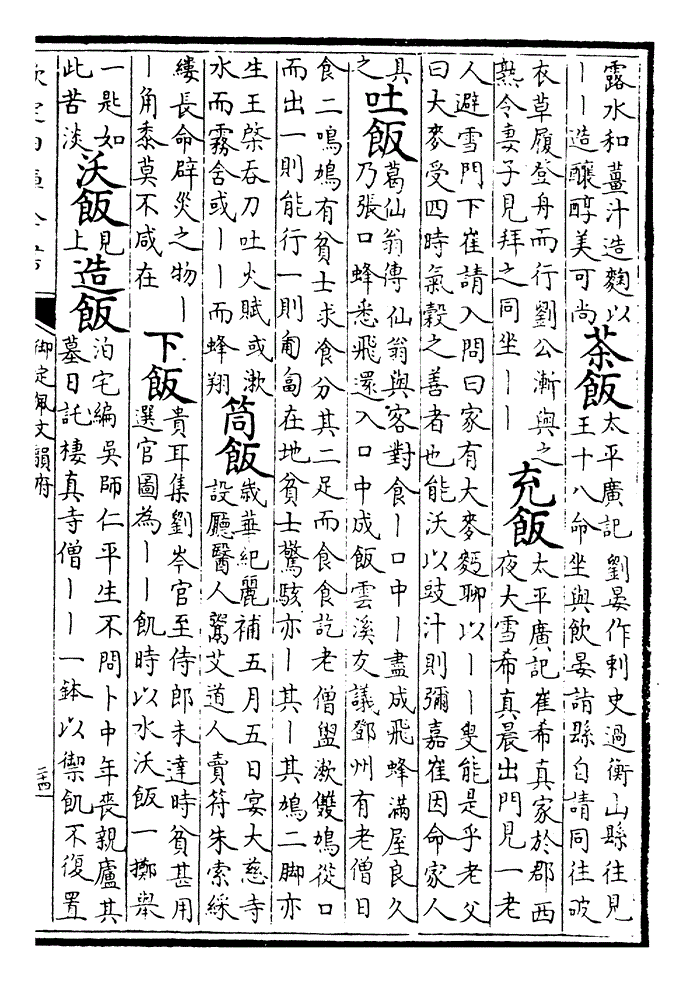 露水和薑汁造麴以
｜｜造醸醇美可尚
茶飯
太平廣記劉晏作刺史過衡山縣往見
王十八命坐與飲晏詣縣自請同往破
衣草履登舟而行劉公漸與之
熟令妻子見拜之同坐｜｜
充飯
太平廣記崔希真家於郡西
夜大雪希真晨出門見一老
人避雪門下崔請入問曰家有大麥麪聊以｜｜叟能是乎老父
曰大麥受四時氣穀之善者也能沃以豉汁則彌嘉崔因命家人
具
之
吐飯
葛仙翁傳仙翁與客對食｜口中｜盡成飛蜂滿屋良久
乃張口蜂悉飛還入口中成飯雲溪友議鄧州有老僧日
食二鳴鳩有貧士求食分其二足而食食訖老僧盥漱雙鳩從口
而出一則能行一則匍匐在地貧士驚駭亦｜其｜其鳩二脚亦
生王棨吞刀吐火賦或漱
水而霧舍或｜｜而蜂翔
筒飯
歲華紀麗補五月五日宴大慈寺
設廳醫人鬻艾道人賣符朱索綵
縷長命辟災之物｜
｜角黍莫不咸在
下飯
貴耳集劉岑官至侍郎未達時貧甚用
選官圖為｜｜飢時以水沃飯一擲舉
一匙如
此苦淡
沃飯
見
上
造飯
泊宅編吳師仁平生不問卜中年喪親廬其
墓日託棲真寺僧｜｜一鉢以禦飢不復置
欽定四庫全書
御定佩文韻府